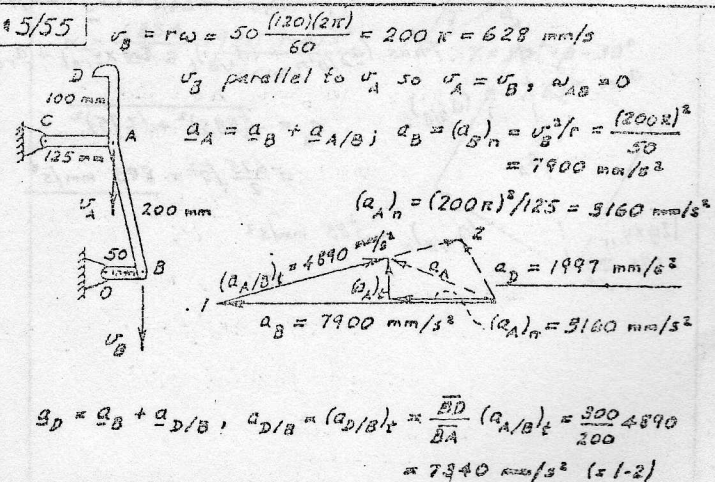 5/55
v_B = rω = 50 (120)(2π)/60 = 200 π = 628 mm/s
v_B parallel to v_A so v_A = v_B, ω_AB = 0
a_A = a_B + a_A/B; a_B = (a_B)_n = v_B²/r = (200π)²/50
= 7900 mm/s²
(a_A)_n = (200π)²/125 = 3160 mm/s²
D
100 mm
C
A
125 mm
v_A
200 mm
50
B
O
v_B
(a_A/B)_t = 4890 mm/s²
2
a_A
(a_A)_t
a_D = 1997 mm/s²
1
a_B = 7900 mm/s²
(a_A)_n = 3160 mm/s²
a_D = a_B + a_D/B, a_D/B = (a_D/B)_t = BD/BA (a_A/B)_t = 300/200 4890
= 7340 mm/s² (= 1-2)